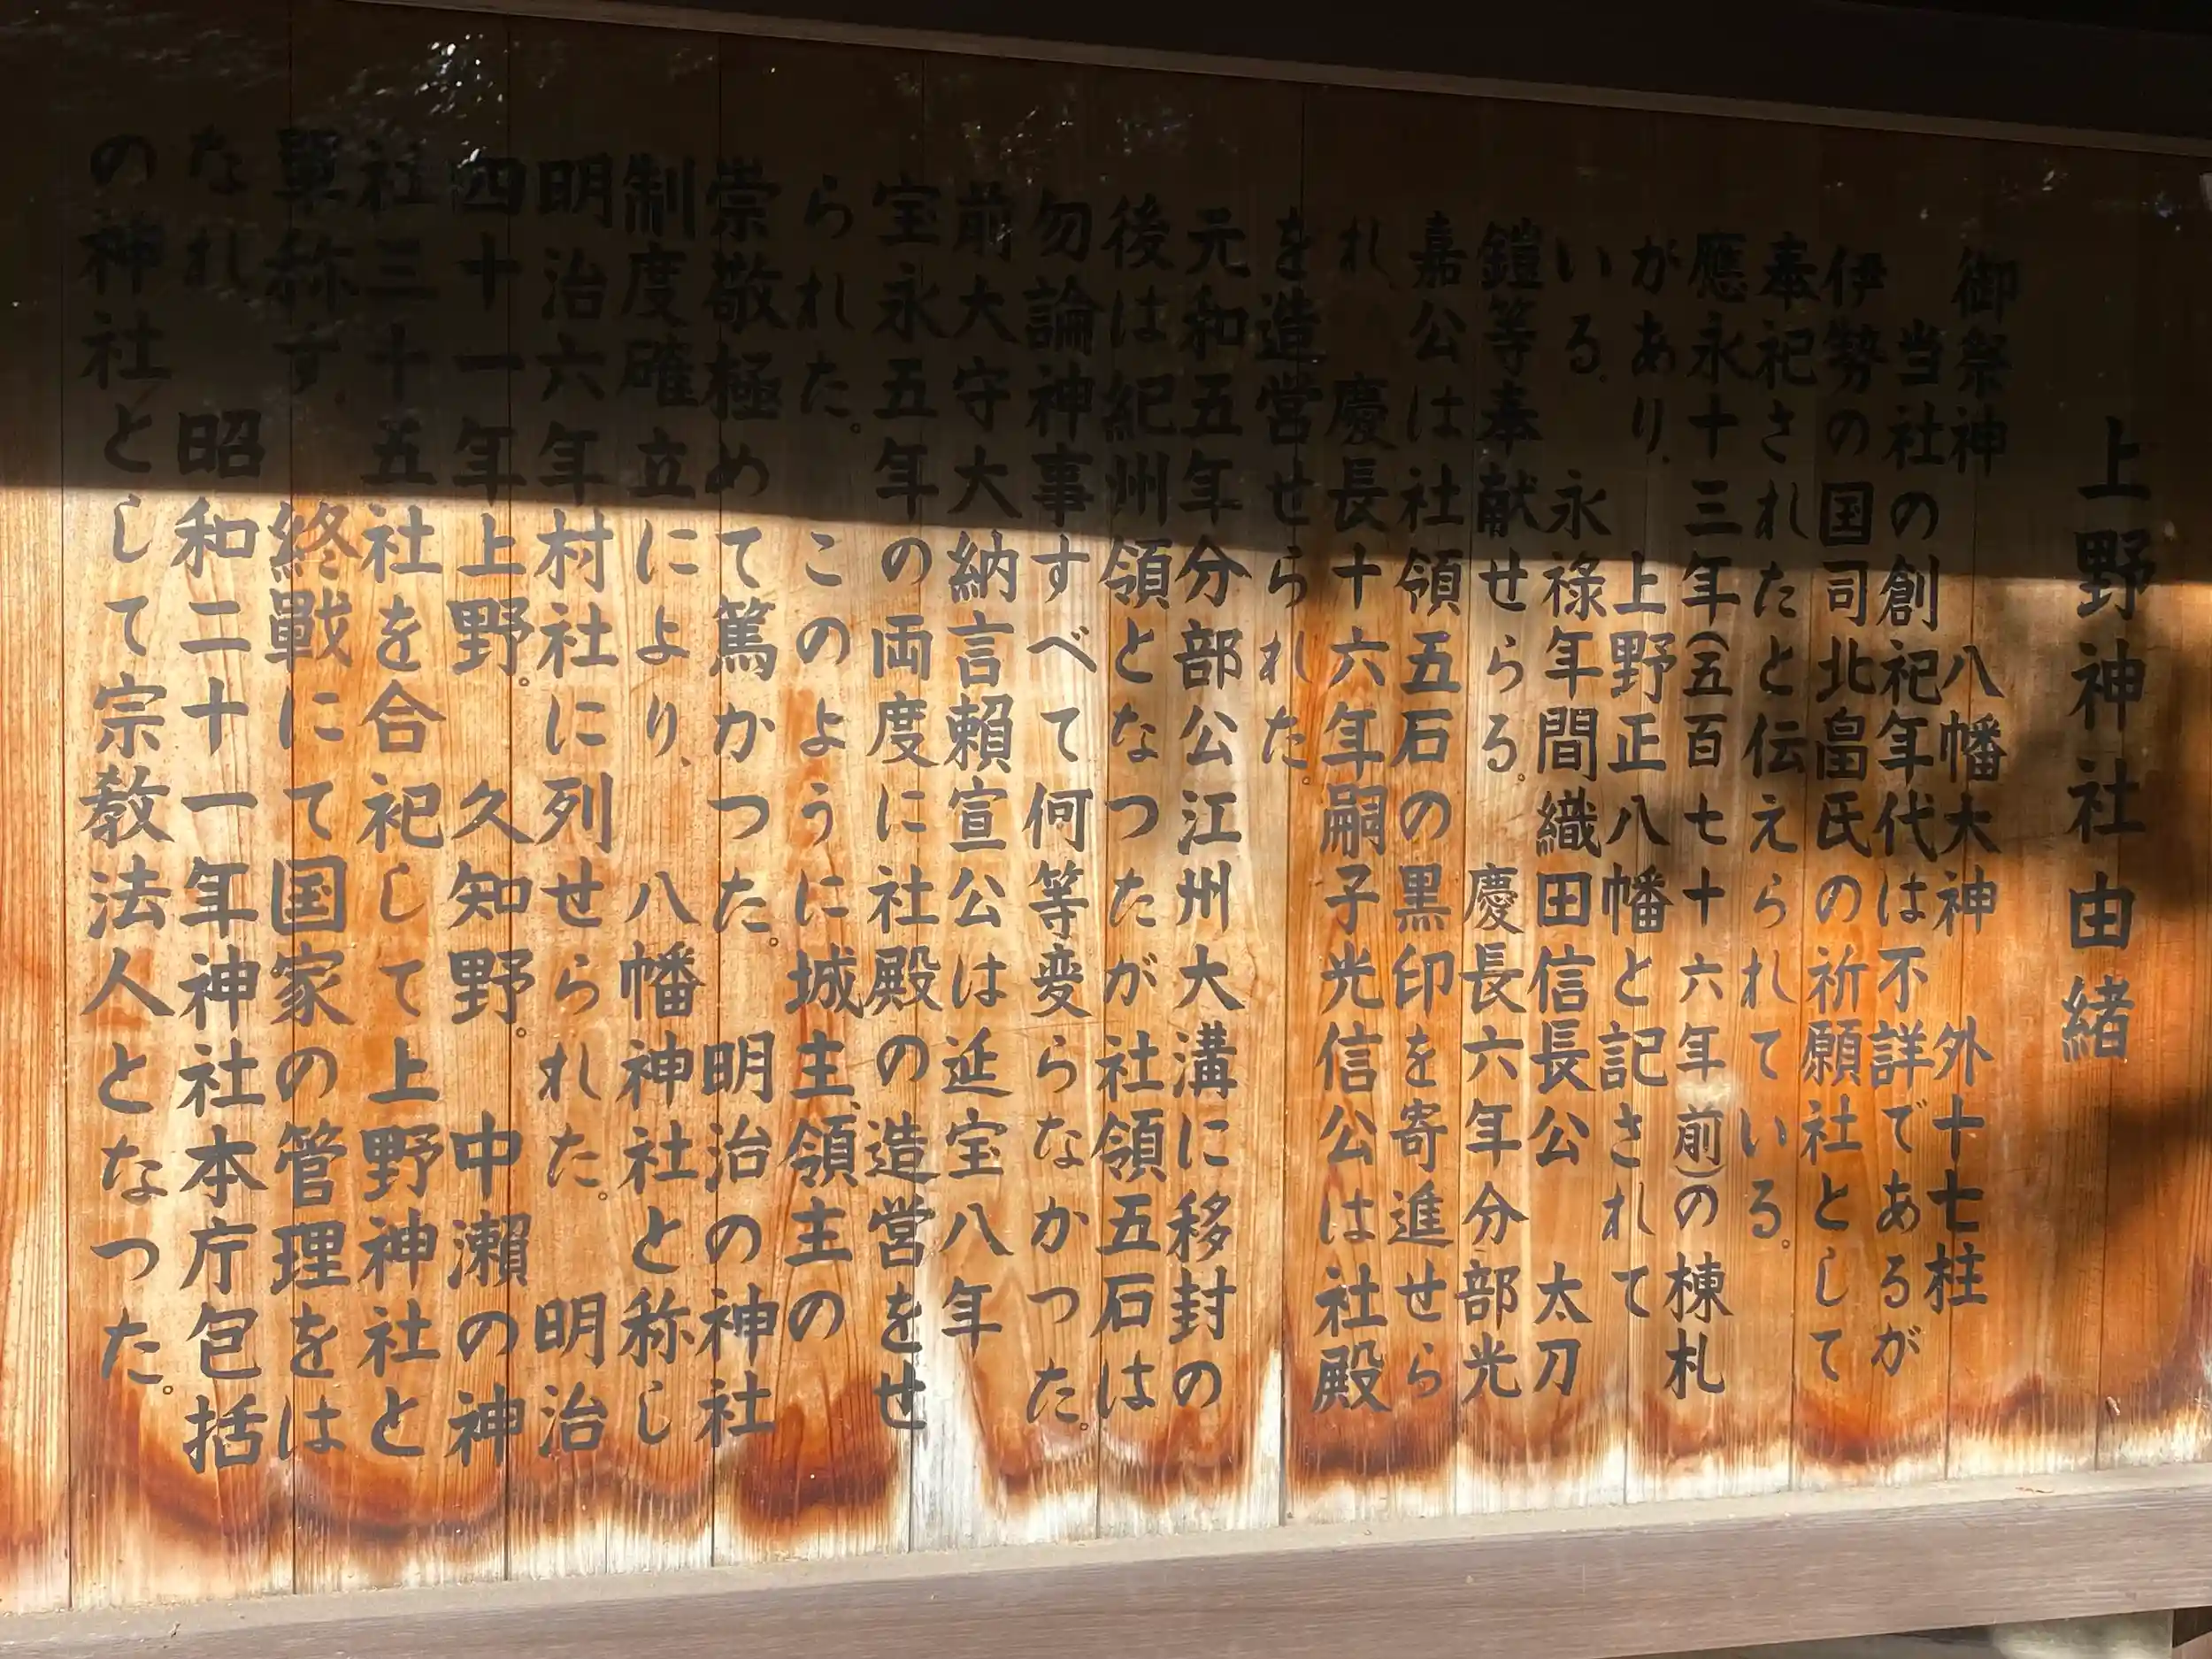 上野神社由緒
御祭神　八幡大神　外十七柱
当社の創祀年代は不詳であるが
伊勢の国司北畠氏の祈願社として
奉祀されたと伝えられている。
應永十三年(五百七十六年前)の棟札
があり、上野正八幡と記されて
いる。　永禄年間織田信長公　太刀
鎧等奉献せらる。　慶長六年分部光
嘉公は社領五石の黒印を寄進せら
れ、　慶長十六年嗣子光信公は社殿
を造営せられた。
元和五年分部公江州大溝に移封の
後は紀州領となつたが社領五石は
勿論神事すべて何等変らなかつた。
前大守大納言頼宣公は延宝八年
宝永五年の両度に社殿の造営をせ
られた。　このように城主、領主の
崇敬極めて篤かつた。　明治の神社
制度確立により、　八幡神社と称し
明治六年村社に列せられた。　明治
四十一年上野。　久知野。　中瀬の神
社三十五社を合祀して上野神社と
單称す、　終戰にて国家の管理をは
なれ、　昭和二十一年神社本庁包括
の神社として宗教法人となつた。